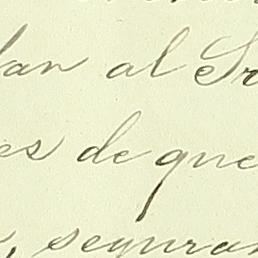 lan al Sr
es de que
, seguran